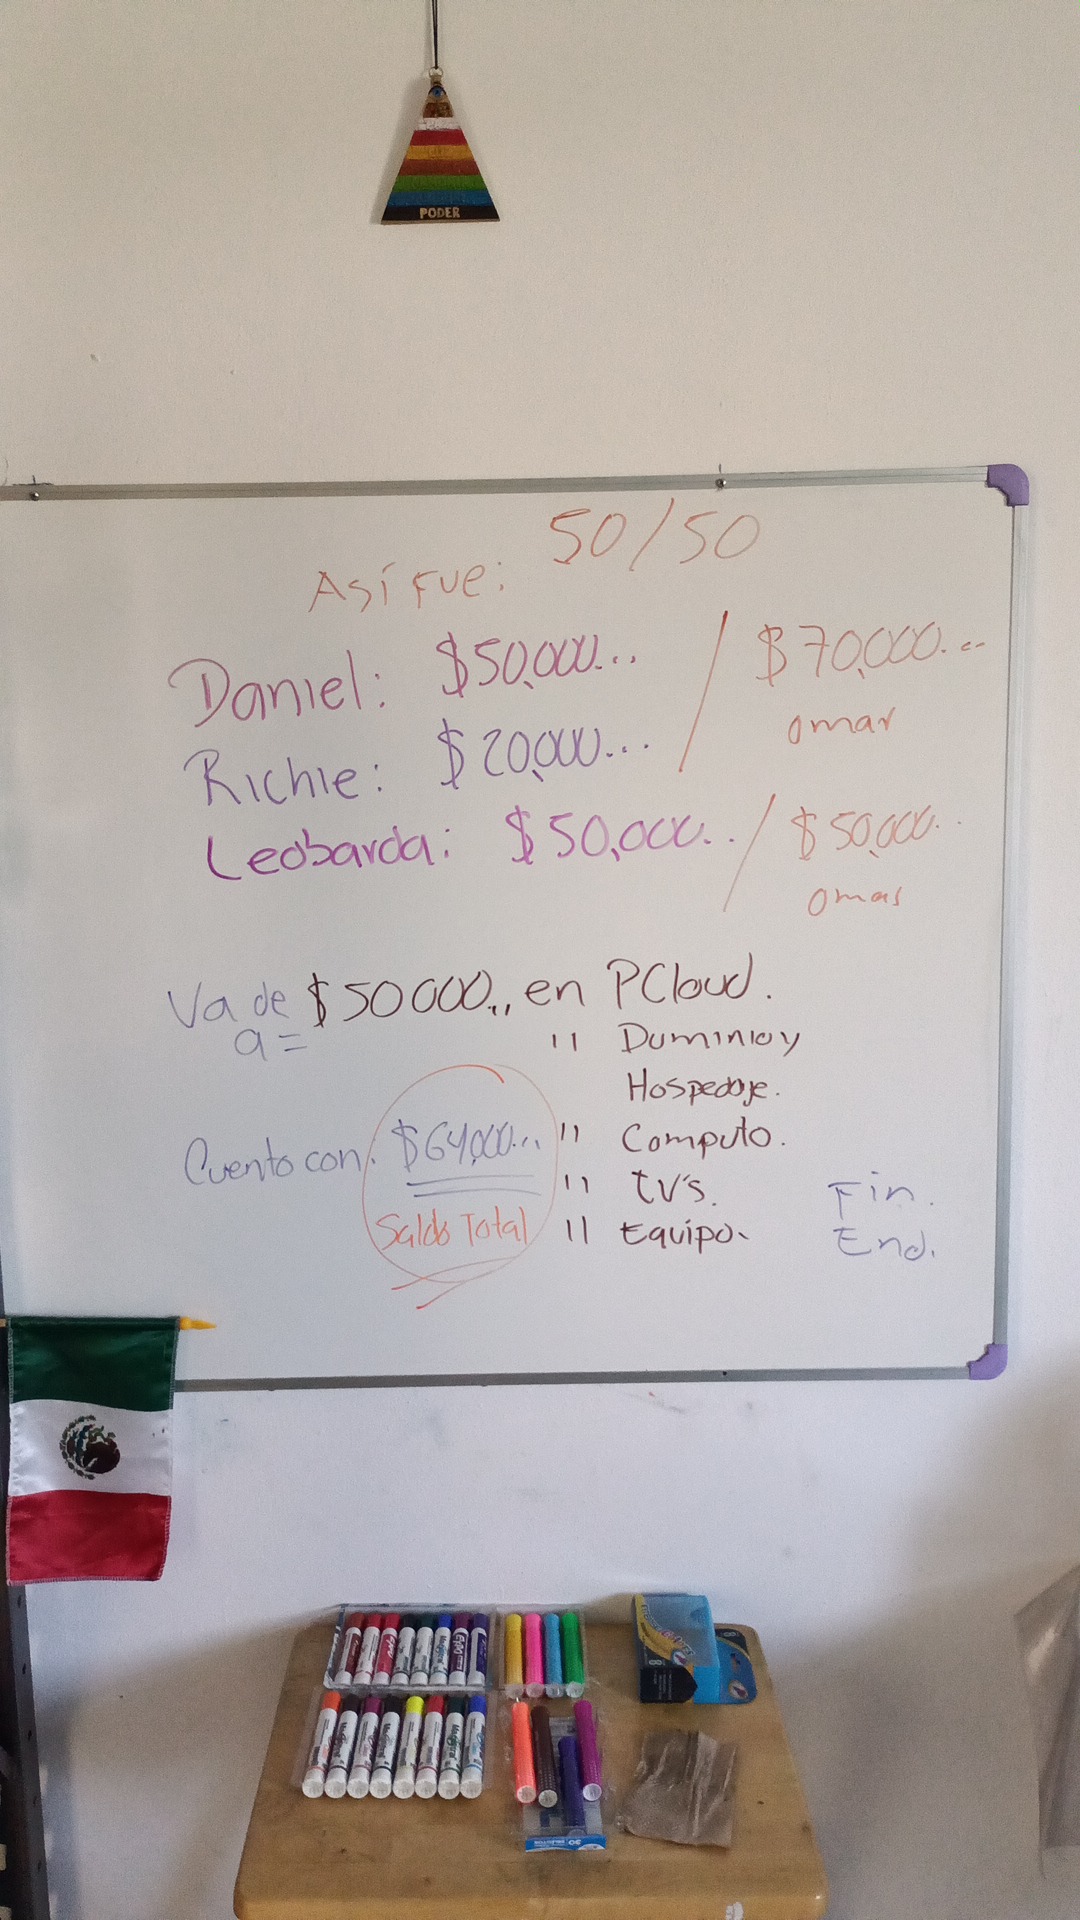 PODER
50/50
Así fue:
Daniel: $50,000... / $70,000...
omar
Richie: $20,000...
Leobarda: $50,000.. / $50,000..
omar
Va de $50000.., en PCloud.
a= " Duminio y
Hospedaje.
Cuento con: $64,000... " Computo.
" tv's. Fin.
Saldo Total " Equipo. End.